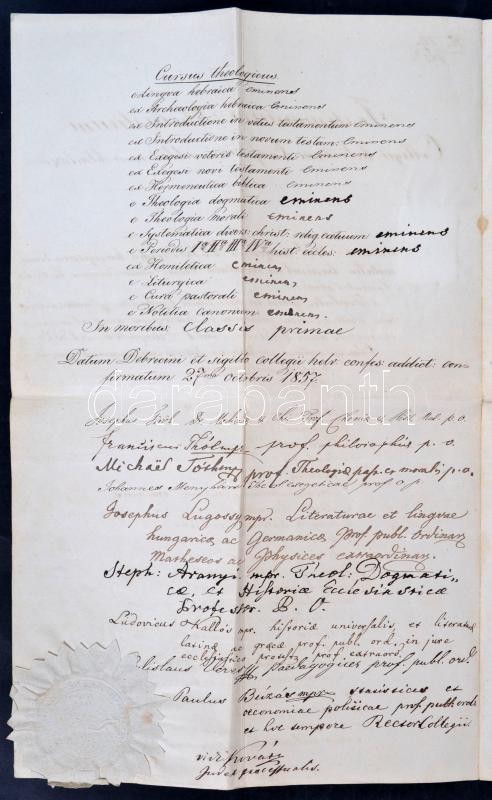 Cursus theologicus
e Lingva hebraica eminens
ex Archæologia hebraica eminens
ex Introductione in vetus testamentum eminens
ex Introductione in novum testam. eminens
ex Exegesi veteris testamenti eminens
ex Exegesi novi testamenti eminens
ex Hermeneutica biblica eminens
e Theologia dogmatica eminens
e Theologia morali eminens
e Systematica divers. christ. relig. eminens
e Periodus Ia IIa IIIa IVa hist. eccles. eminens
ex Homiletica eminens
e Liturgica eminens
e Cura pastorali eminens
e Notitia canonum eminens.
In moribus Classis primae
Datum Debrecini et sigillo collegii helv. confes. addict. con-
firmatum 27ma octobris 1857.
Josephus Prof. Chemiæ
Franciscus prof. philosophiæ p. o.
Michaël Tóth mpr. prof. Theologiæ past. et moralis p. o.
Johannes Menyhárt Theol. exegeticae prof. o. p.
Josephus Lugossy mpr. Literaturae et lingvae
hungaricæ ac Germanicæ Prof. publ. ordinar.
Matheseos ac Physices extraordinar.
Steph: Aranyi mpr. Theol: Dogmati-
cæ, et Historiæ Ecclesiasticæ
Professor P. O.
Ludovicus Kallós mpr. historiæ universalis, et literaturæ
latinæ ac græcæ prof. publ. ord. in jure
ecclesiastico protest. prof. extraord.
Veress pædagogices prof. publ. ord.
Paulus Buzás mpr. statistices et
oeconomiae politicae prof. publ. ord.
et hoc tempore Rector Collegii.
vidi Kovács
darabanth